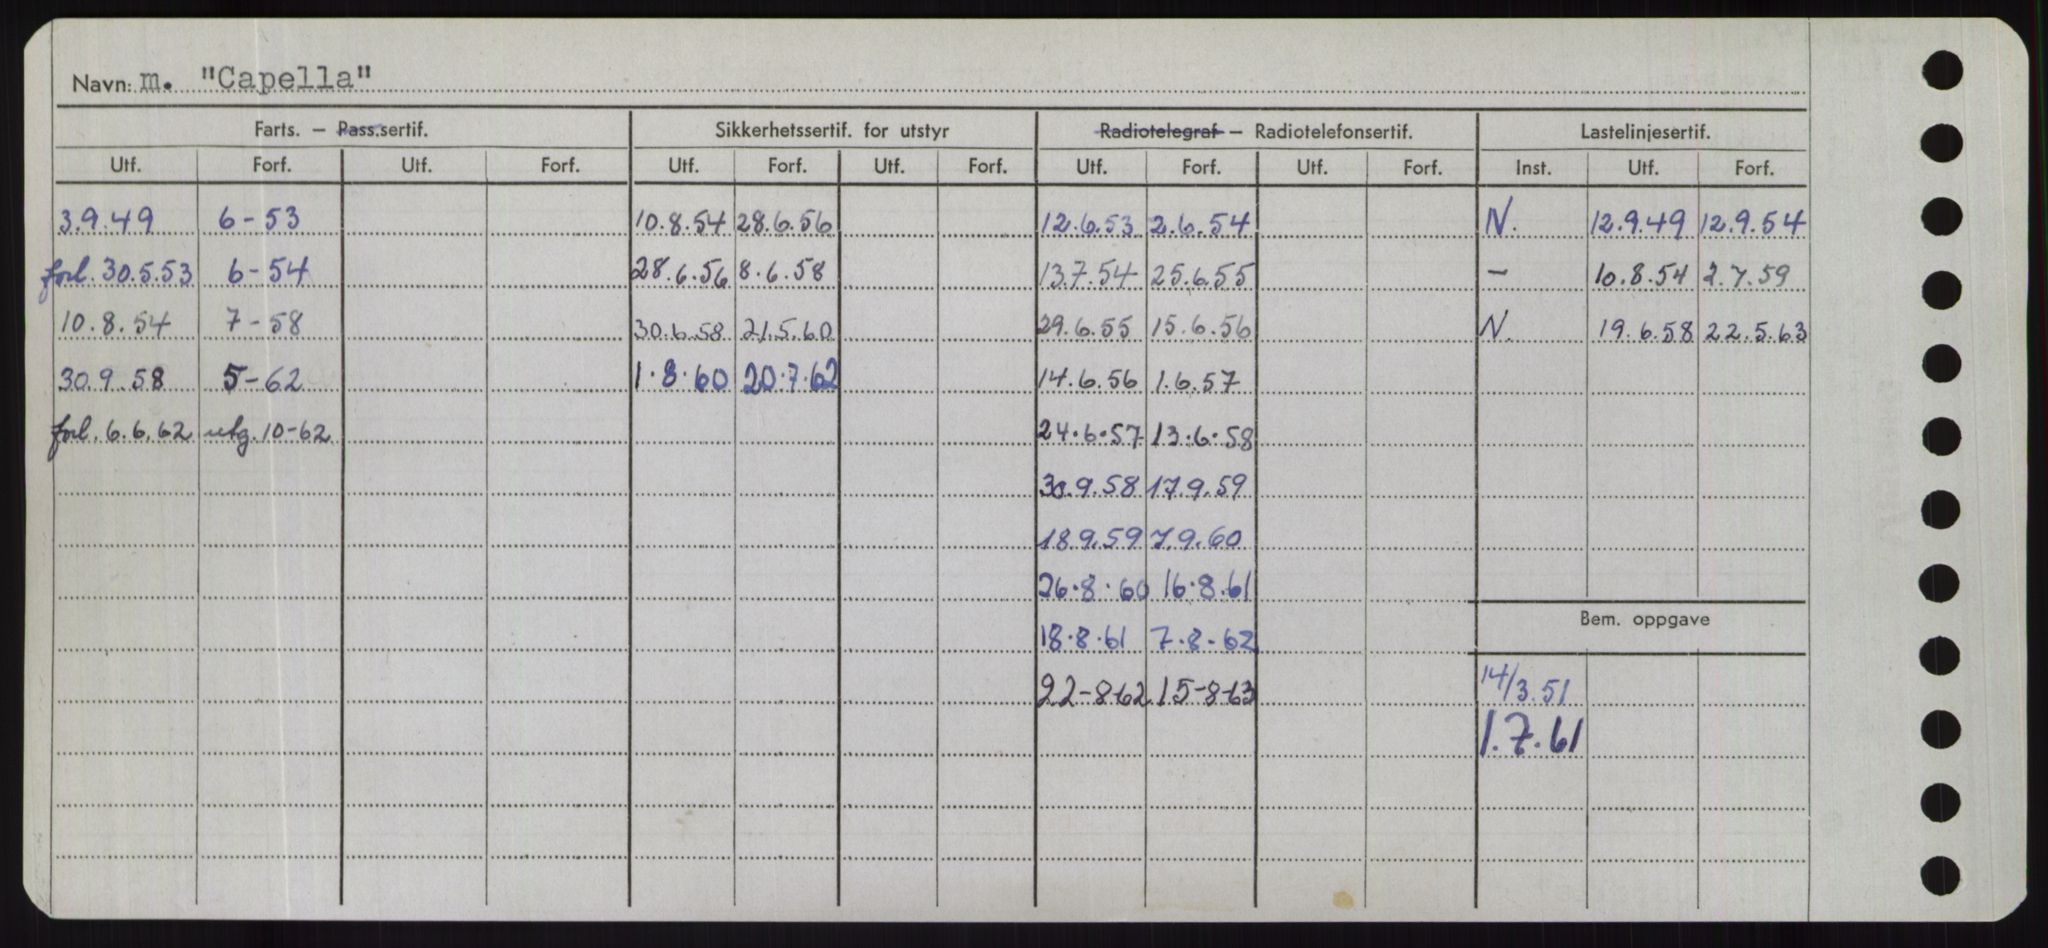 Navn: m. "Capella"
Farts. – Pass.sertif. Sikkerhetssertif. for utstyr Radiotelegraf – Radiotelefonsertif. Lastelinjesertif.
Utf. Forf. Utf. Forf. Utf. Forf. Utf. Forf. Utf. Forf. Utf. Forf. Inst. Utf. Forf.
3.9.49 6-53 10.8.54 28.6.56 12.6.53 2.6.54 N. 12.9.49 12.9.54
forl. 30.5.53 6-54 28.6.56 8.6.58 13.7.54 25.6.55 – 10.8.54 2.7.59
10.8.54 7-58 30.6.58 21.5.60 29.6.55 15.6.56 N. 19.6.58 22.5.63
30.9.58 5-62 1.8.60 20.7.62 14.6.56 1.6.57
forl. 6.6.62 utg. 10-62 24.6.57 13.6.58
30.9.58 17.9.59
18.9.59 7.9.60
26.8.60 16.8.61
Bem. oppgave
18.8.61 7.8-62
22-8-62 15-8-63 14/3.51
1.7.61